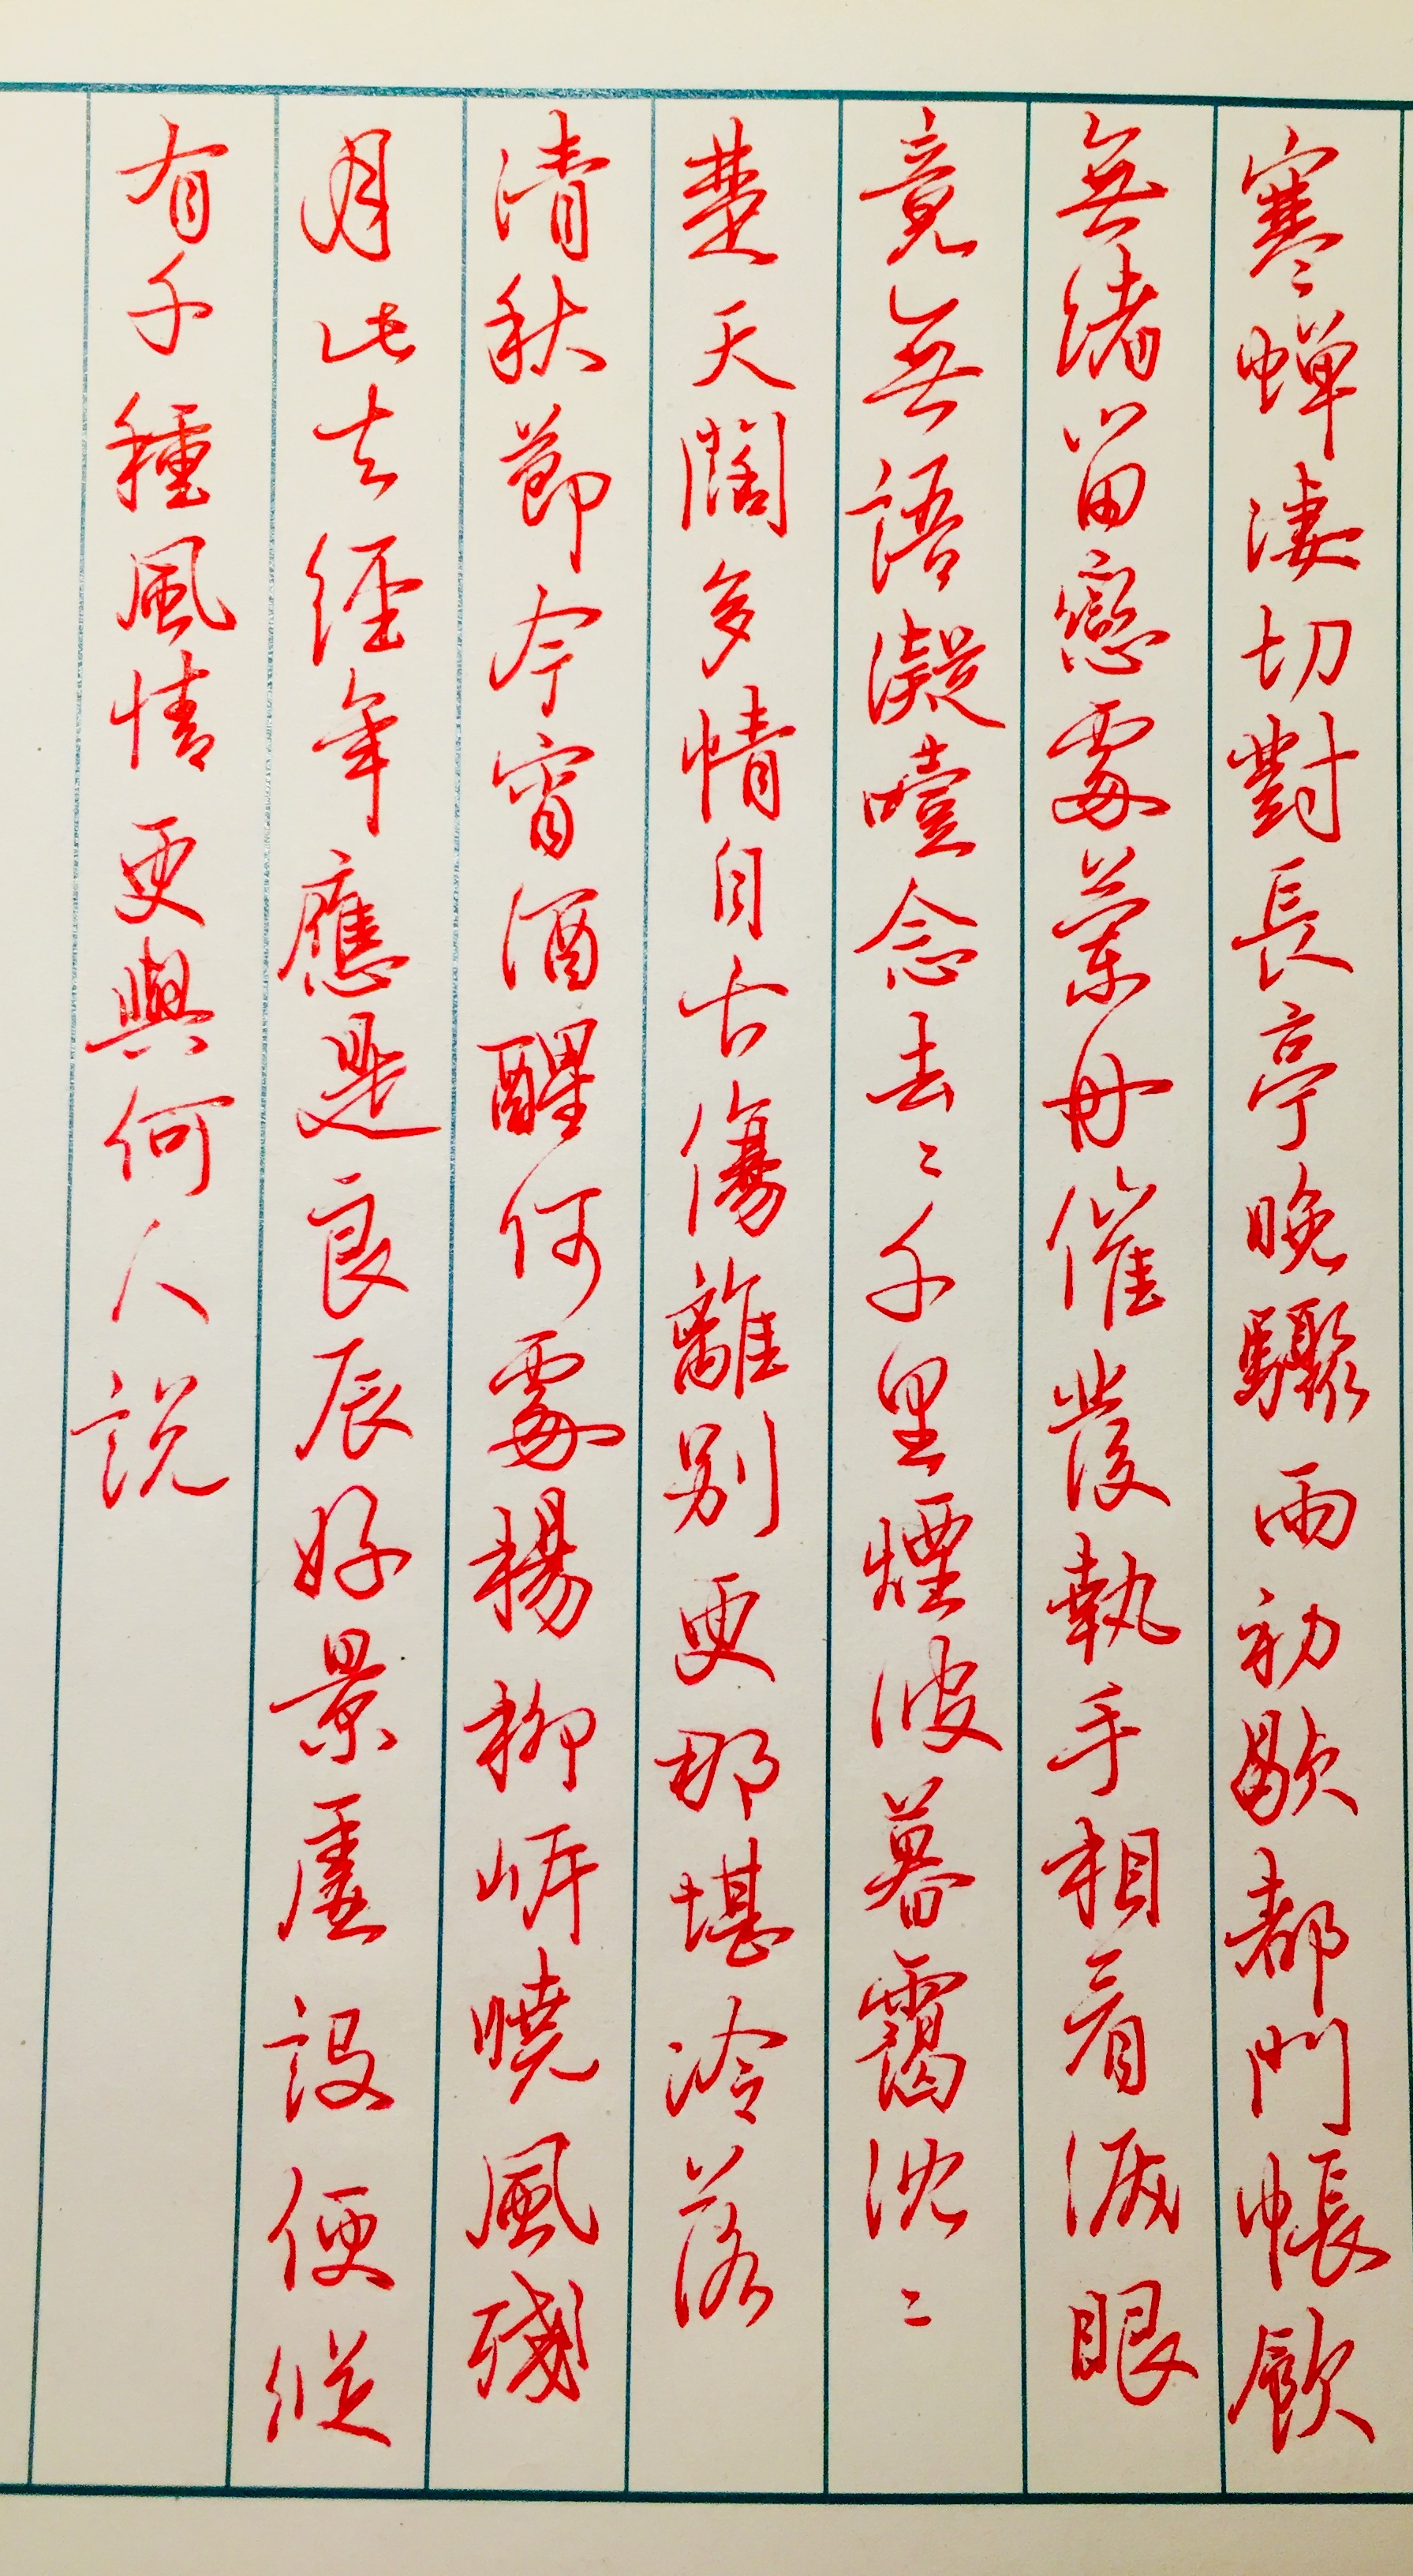 寒蟬淒切對長亭晚驟雨初歇都門帳飲
無緒留戀處蘭舟催發執手相看淚眼
竟無語凝噎念去〻千里煙波暮靄沈〻
楚天闊多情自古傷離別更那堪冷落
清秋節今宵酒醒何處楊柳岸曉風殘
月此去經年應是良辰好景虛設便縱
有千種風情更與何人說